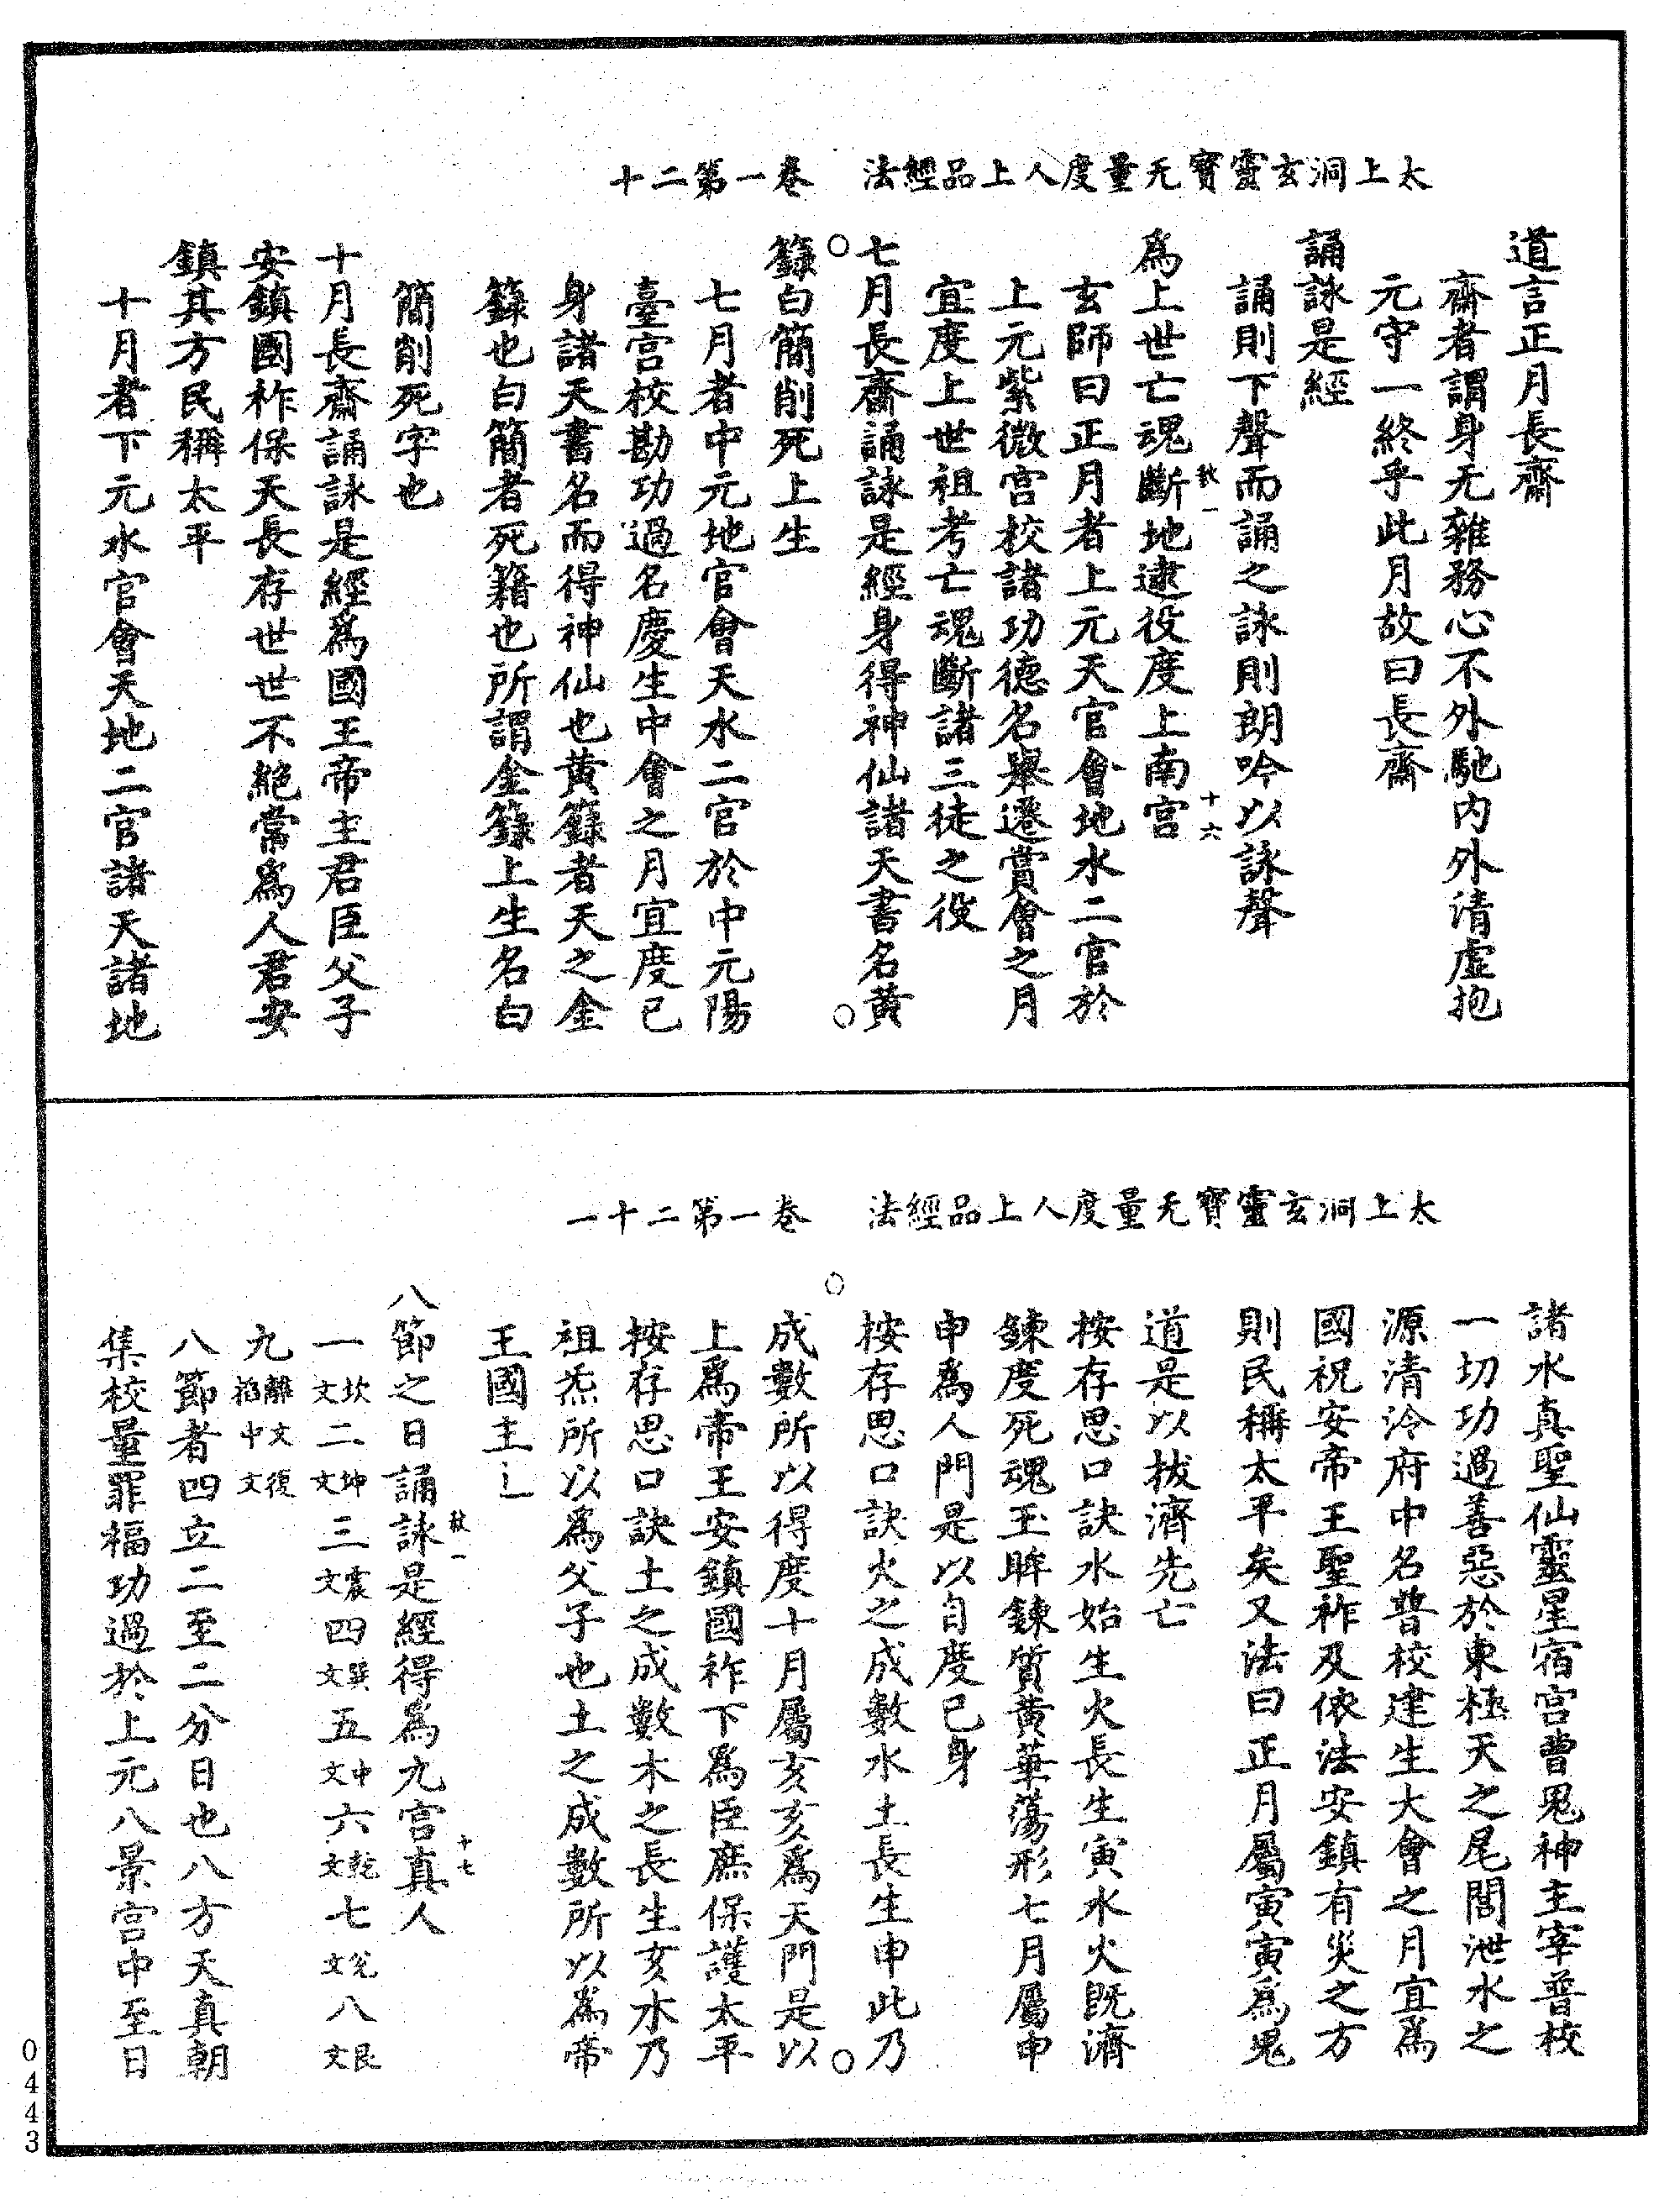 太上洞玄靈寳无量度人上品經法 卷一第二十
道言正月長齋
齋者謂身无雜務心不外馳内外清虛抱
元守一終乎此月故曰長齋
誦詠是經
誦則下聲而誦之詠則朗吟以詠聲
十六
爲上世亡魂斷地逮役度上南宮
玄師曰正月者上元天官會地水二官於
上元紫微宮校諸功德名舉遷賞會之月
宜度上世祖考亡魂斷諸三徒之役
七月長齋誦詠是經身得神仙諸天書名黄
籙白簡削死上生
七月者中元地官會天水二官於中元陽
臺宮校勘功過名慶生中會之月宜度己
身諸天書名而得神仙也黄籙者天之金
籙也白簡者死籍也所謂金籙上生名白
簡削死字也
十月長齋誦詠是經爲國王帝主君臣父子
安鎮國祚保天長存世世不絕常爲人君安
鎮其方民稱太平
十月者下元水官會天地二官諸天諸地
太上洞玄靈寳无量度人上品經法 卷一第二十一
諸水真聖仙靈星宿宮曹鬼神主宰普校
一切功過善惡於東極天之尾閭泄水之
源清泠府中名普校建生大會之月宜爲
國祝安帝王聖祚及依法安鎮有災之方
則民稱太平矣又法曰正月屬寅寅爲鬼
道是以拔濟先亡
按存思口訣水始生火長生寅水火既濟
鍊度死魂玉眸鍊質黄華蕩形七月屬申
申爲人門是以自度已身
按存思口訣火之成數水土長生申此乃
成數所以得度十月屬亥亥爲天門是以
上爲帝王安鎮國祚下爲臣庶保護太平
按存思口訣土之成數木之長生亥水乃
祖炁所以爲父子也土之成數所以爲帝
王國主
十七
八節之日誦詠是經得爲九宮真人
一坎文二坤文三震文四巽文五中文六乾文七兌文八艮文
九離文復掐中文
八節者四立二至二分日也八方天真朝
集校量罪福功過於上元八景宮中至日
0443